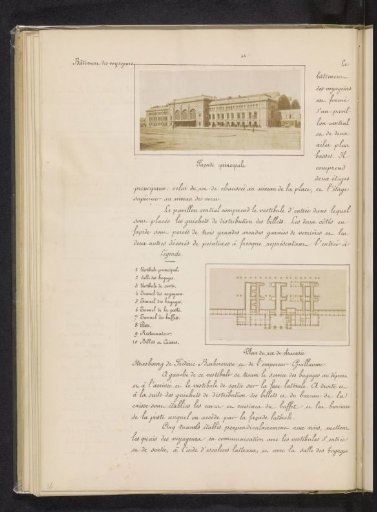 Bâtiment des voyageurs
Le
bâtiment
des voyageurs
est formé
d'un pavil
lon central
et de deux
ailes plus
basses. Il
comprend
deux étages
principaux: celui du rez de chaussée au niveau de la place, et l'étage
supérieur au niveau des voies.
Le pavillon central comprend le vestibule d'entrée dans lequel
sont placés les guichets de distribution des billets. Les deux côtés en
façade sont percés de trois grandes arcades garnies de verrières et les
deux autres décorés de peintures à fresque représentant l'entrée à
Façade principale
Légende
1 Vestibule principal.
2 Salle des bagages.
3 Vestibule de sortie.
4 Tunnel des voyageurs.
5 Tunnel des bagages.
6 Tunnel de la poste.
7 Tunnel du buffet.
9 Restaurateur.
10 Billets et Caisse.
Plan du rez de chaussée
Strasbourg de Frédéric Barberousse et de l'empereur Guillaume.
A gauche de ce vestibule se trouve le service des bagages au départ
et à l'arrivée et le vestibule de sortie sur la face latérale. A droite et
à la suite des guichets de distribution des billets et du bureau de la
caisse sont établies les caves et cuisines du buffet et les bureaux
de la poste auquel on accède par la façade latérale.
Cinq tunnels établis perpendiculairement aux voies, mettent
les quais des voyageurs en communication avec les vestibules d'entrée
et de sortie, à l'aide d'escaliers latéraux, et avec la salle des bagages